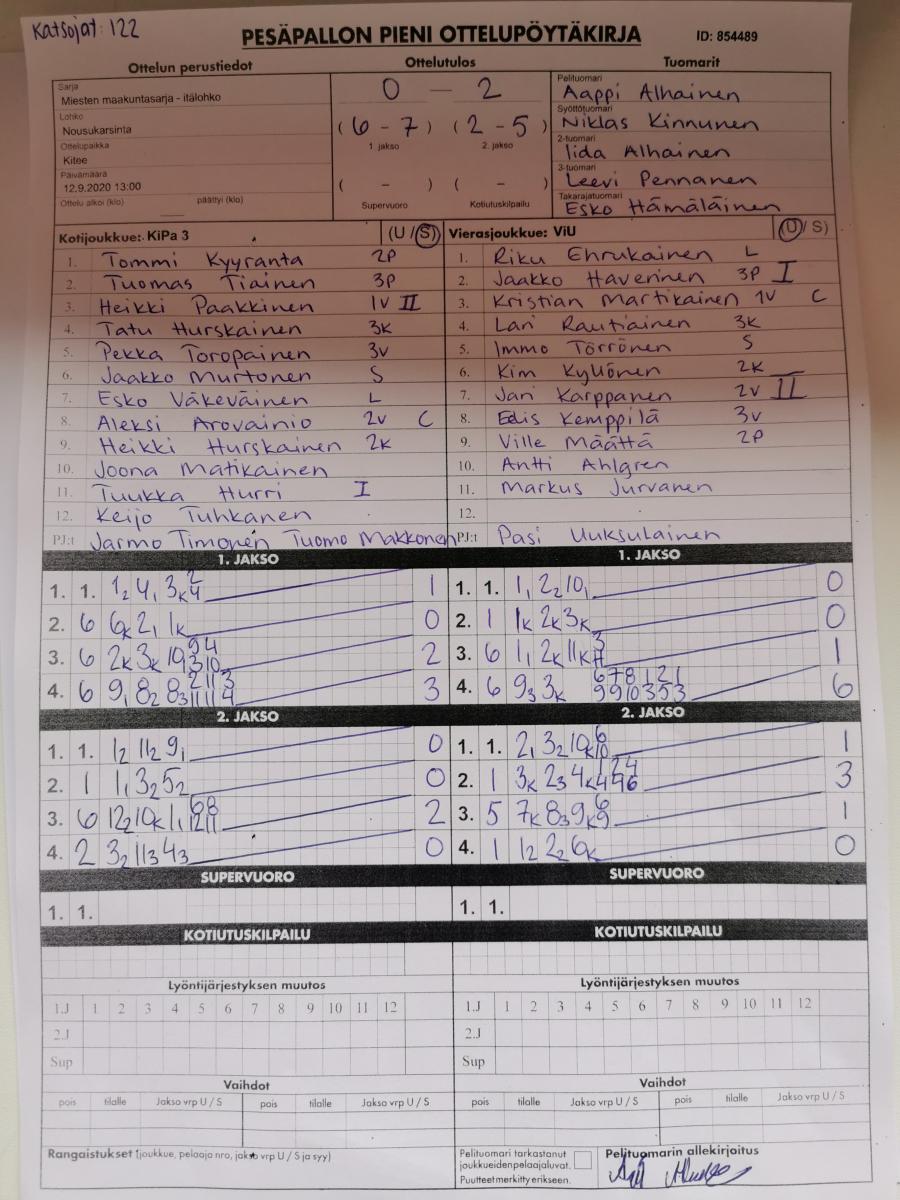 Katsojat: 122
PESÄPALLON PIENI OTTELUPÖYTÄKIRJA ID: 854489
Ottelun perustiedot
Sarja
Miesten maakuntasarja - itälohko
Lohko
Nousukarsinta
Ottelupaikka
Kitee
Päivämäärä
12.9.2020 13:00
Ottelu alkoi (klo) päättyi (klo)
Ottelutulos
0 — 2
(6 - 7) (2 - 5)
1. jakso 2. jakso
( - ) ( - )
Supervuoro Kotiutuskilpailu
Tuomarit
Pelituomari
Aappi Alhainen
Syöttötuomari
Niklas Kinnunen
2-tuomari
Iida Alhainen
3-tuomari
Leevi Pennanen
Takarajatuomari
Esko Hämäläinen
Kotijoukkue: KiPa 3 (U / S)
1. Tommi Kyyranta 2P
2. Tuomas Tiainen 3P
3. Heikki Paakkinen 1V II
4. Tatu Hurskainen 3K
5. Pekka Toropainen 3V
6. Jaakko Murtonen S
7. Esko Väkeväinen L
8. Aleksi Arovainio 2V C
9. Heikki Hurskainen 2K
10. Joona Matikainen
11. Tuukka Hurri I
12. Keijo Tuhkanen
PJ:t Jarmo Timonen Tuomo Makkonen
Vierasjoukkue: ViU (U / S)
1. Riku Ehrukainen L
2. Jaakko Haverinen 3P I
3. Kristian Martikainen 1V C
4. Lari Rautiainen 3K
5. Immo Törrönen S
6. Kim Kyllönen 2K
7. Jari Karppanen 2V II
8. Edis Kemppilä 3V
9. Ville Määttä 2P
10. Antti Ahlgren
11. Markus Jurvanen
12.
PJ:t Pasi Uuksulainen
1. JAKSO
1. 1. 1₂ 4₁ 3ₖ 2 4 1
2. 6 6ₖ 2₁ 1ₖ 0
3. 6 2ₖ 3ₖ 10 2
4. 6 9₁ 8₂ 8₃ 3
1. JAKSO
1. 1. 1₁ 2₂ 10₁ 0
2. 1 1ₖ 2ₖ 3ₖ 0
3. 6 1₁ 2ₖ 11ₖ 1
4. 6 9₃ 3ₖ 6
2. JAKSO
1. 1. 1₂ 11₂ 9₁ 0
2. 1 1₁ 3₂ 5₂ 0
3. 6 12₂ 10ₖ 1₁ 2
4. 2 3₂ 11₃ 4₃ 0
2. JAKSO
1. 1. 2₁ 3₂ 10ₖ 6 10 1
2. 1 3ₖ 2₃ 4ₖ 3
3. 5 7ₖ 8₃ 9ₖ 6 9 1
4. 1 1₂ 2₂ 6ₖ 0
SUPERVUORO
1. 1.
SUPERVUORO
1. 1.
KOTIUTUSKILPAILU
KOTIUTUSKILPAILU
Lyöntijärjestyksen muutos
1.J 1 2 3 4 5 6 7 8 9 10 11 12
2.J
Sup
Lyöntijärjestyksen muutos
1.J 1 2 3 4 5 6 7 8 9 10 11 12
2.J
Sup
Vaihdot
pois tilalle Jakso vrp U / S pois tilalle Jakso vrp U / S
Vaihdot
pois tilalle Jakso vrp U / S pois tilalle Jakso vrp U / S
Rangaistukset (joukkue, pelaaja nro, jakso vrp U / S ja syy)
Pelituomari tarkastanut
joukkueiden pelaajaluvat.
Puutteet merkitty erikseen.
Pelituomarin allekirjoitus